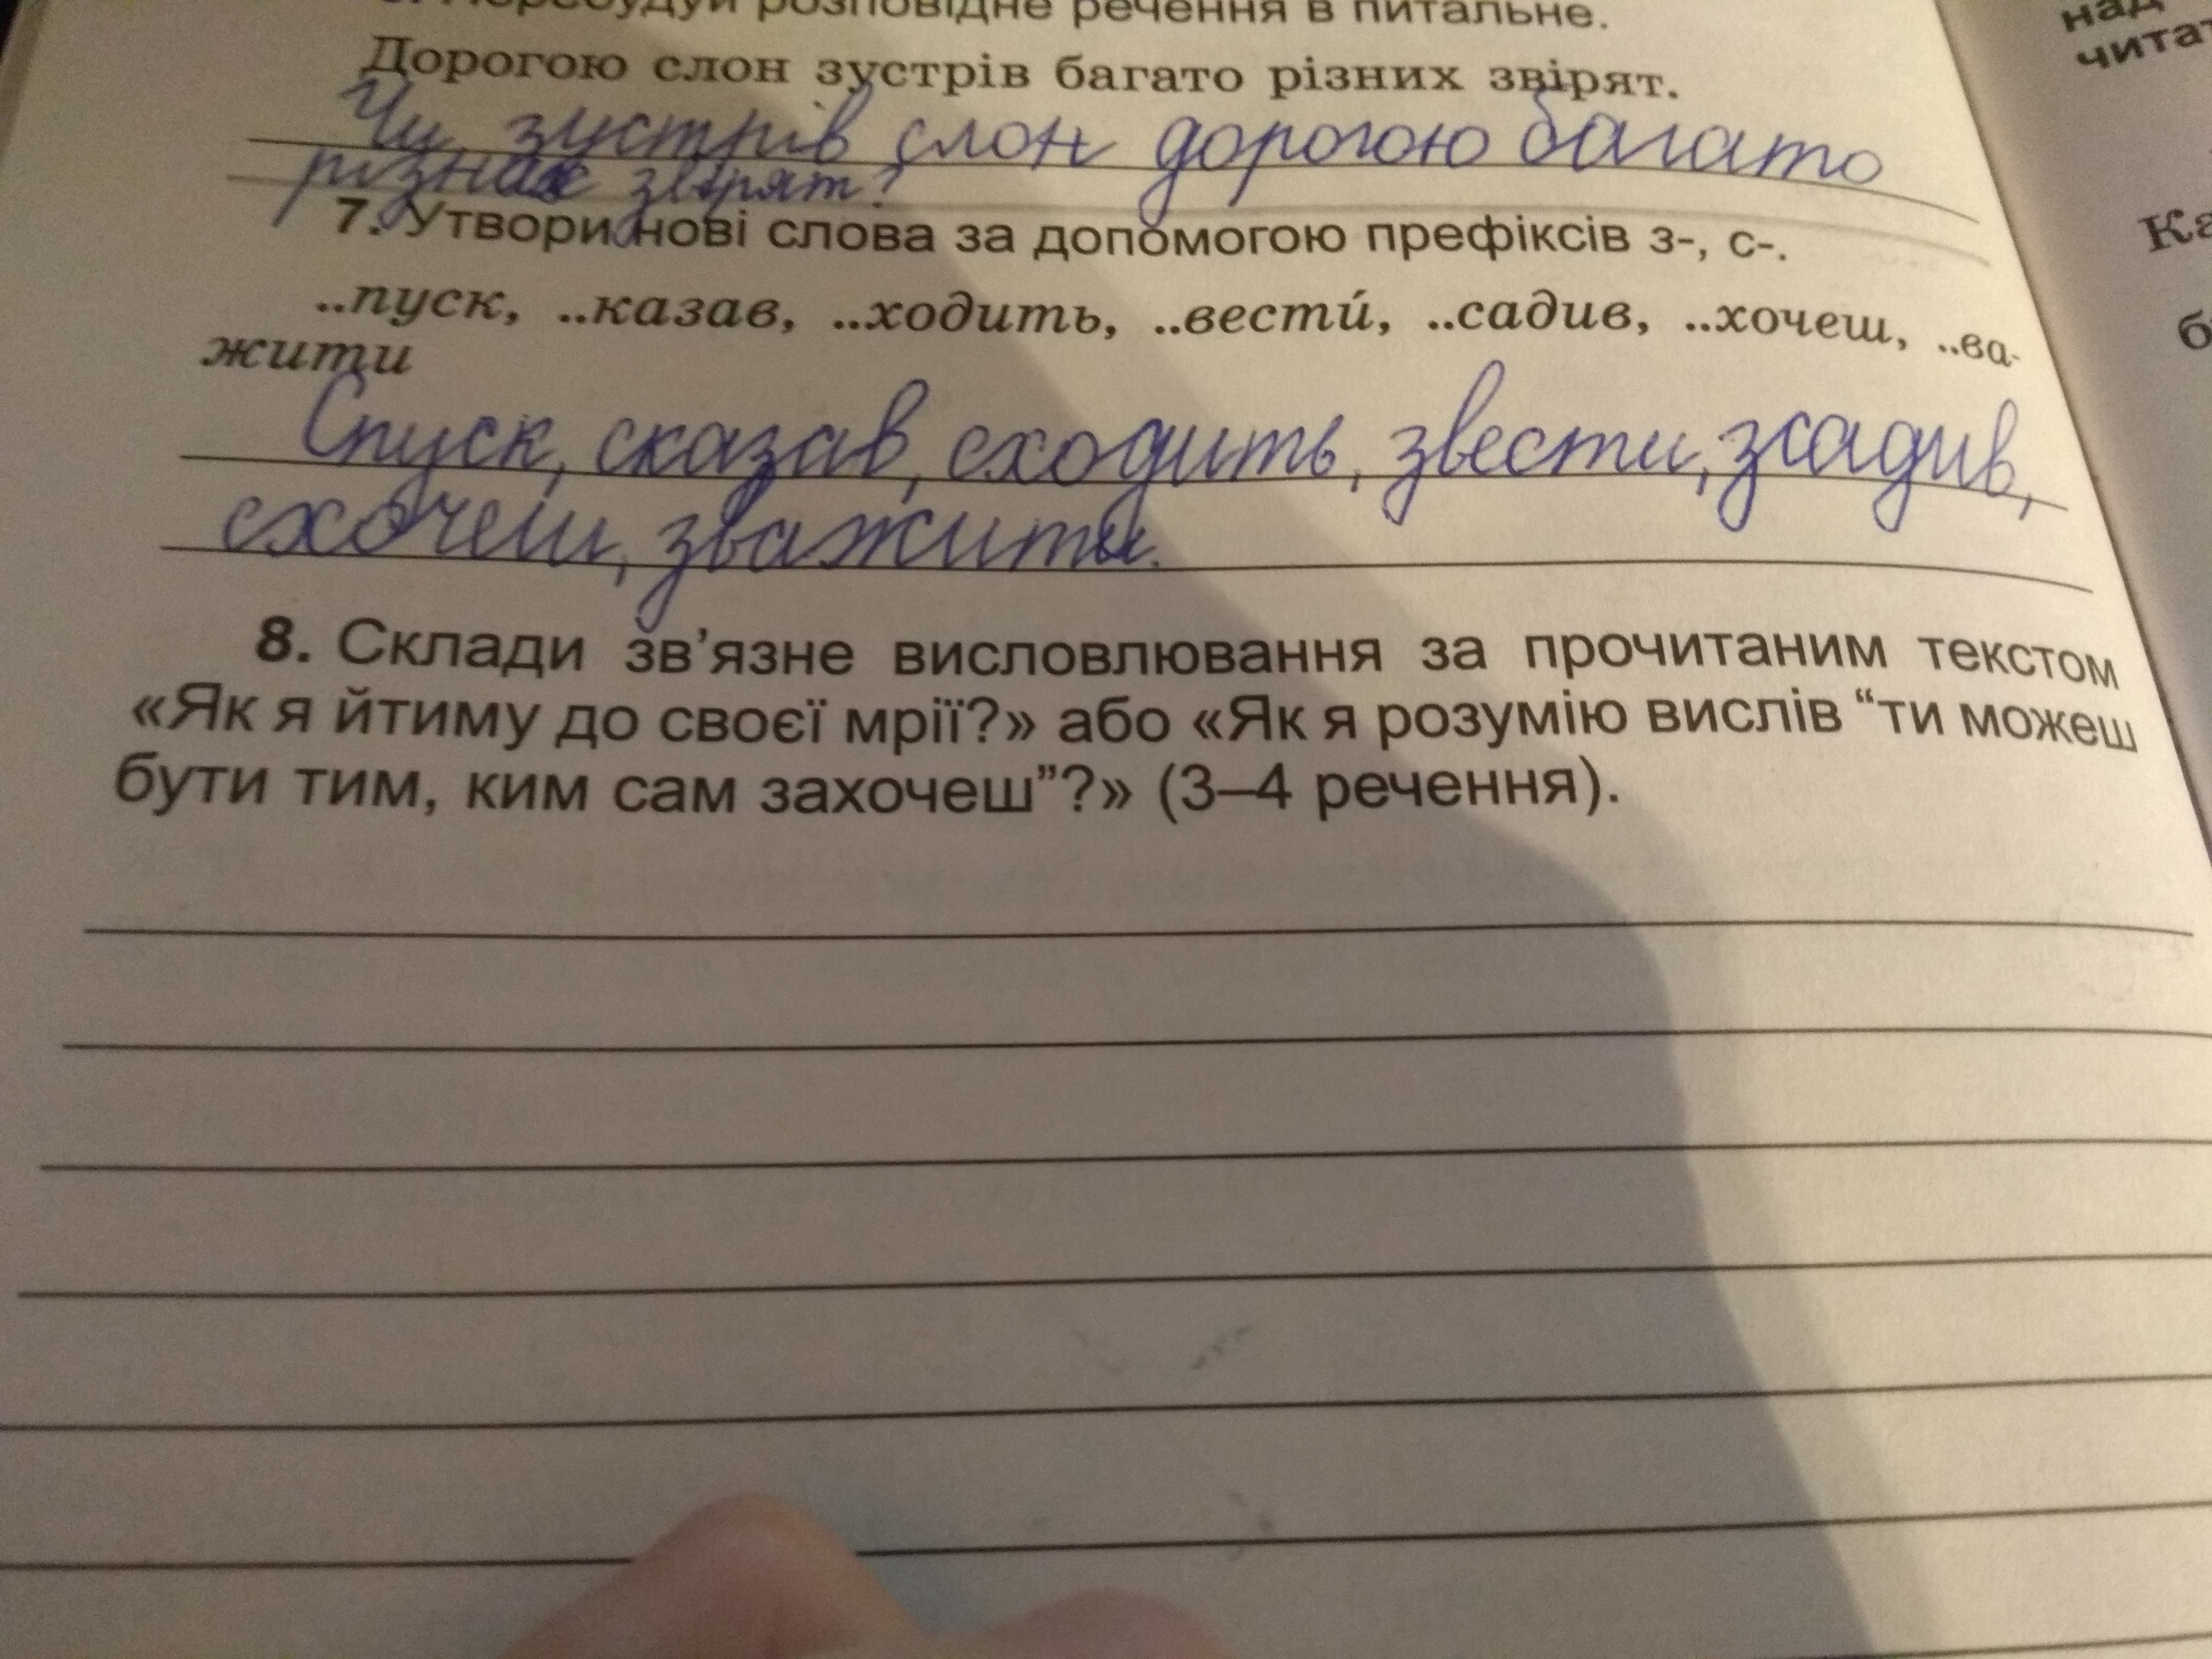 Перебудуй розповідне речення в питальне.
Дорогою слон зустрів багато різних звірят.
Чи зустрів слон дорогою багато
різних звірят?
7. Утвори нові слова за допомогою префіксів з-, с-.
..пуск, ..казав, ..ходить, ..вести́, ..садив, ..хочеш, ..ва-
жити
Спуск, сказав, сходить, звести, зсадив,
схочеш, зважити.
8. Склади зв’язне висловлювання за прочитаним текстом
«Як я йтиму до своєї мрії?» або «Як я розумію вислів “ти можеш
бути тим, ким сам захочеш”?» (3–4 речення).
над
читат
Ка
б